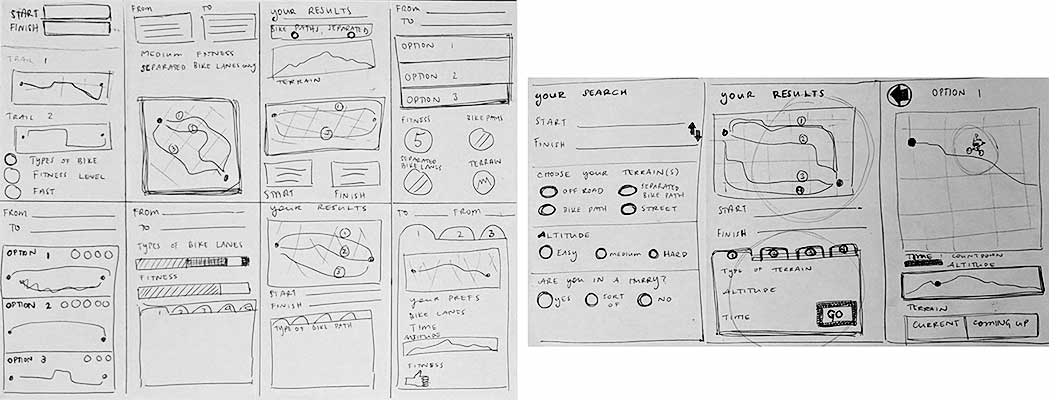 START
FINISH
TRAIL 1
TRAIL 2
TYPES OF BIKE
FITNESS LEVEL
FAST
FROM TO
MEDIUM FITNESS
SEPARATED BIKE LANES only
1
2
3
YOUR RESULTS
BIKE PATHS, SEPARATED
TERRAIN
1
3
START FINISH
FROM
TO
OPTION 1
OPTION 2
OPTION 3
FITNESS BIKE PATHS
5
SEPARATED BIKE LANES TERRAIN
FROM
TO
OPTION 1
OPTION 2
OPTION 3
FROM
TO
TYPES OF BIKE LANES
FITNESS
1 2 3
YOUR RESULTS
1
2
3
START
FINISH
TYPE OF BIKE PATH
TO FROM
1 2 3
YOUR PREFS
BIKE LANES
TIME
ALTITUDE
FITNESS
YOUR SEARCH
START
FINISH
CHOOSE YOUR TERRAIN(S)
OFF ROAD SEPARATED
BIKE PATH
BIKE PATH STREET
ALTITUDE
EASY MEDIUM HARD
ARE YOU IN A HURRY?
YES SORT OF NO
YOUR RESULTS
1
2
3
4
START
FINISH
1 2 3 4
TYPE OF TERRAIN
ALTITUDE
TIME GO
OPTION 1
TIME COUNTDOWN
ALTITUDE
TERRAIN
CURRENT COMING UP